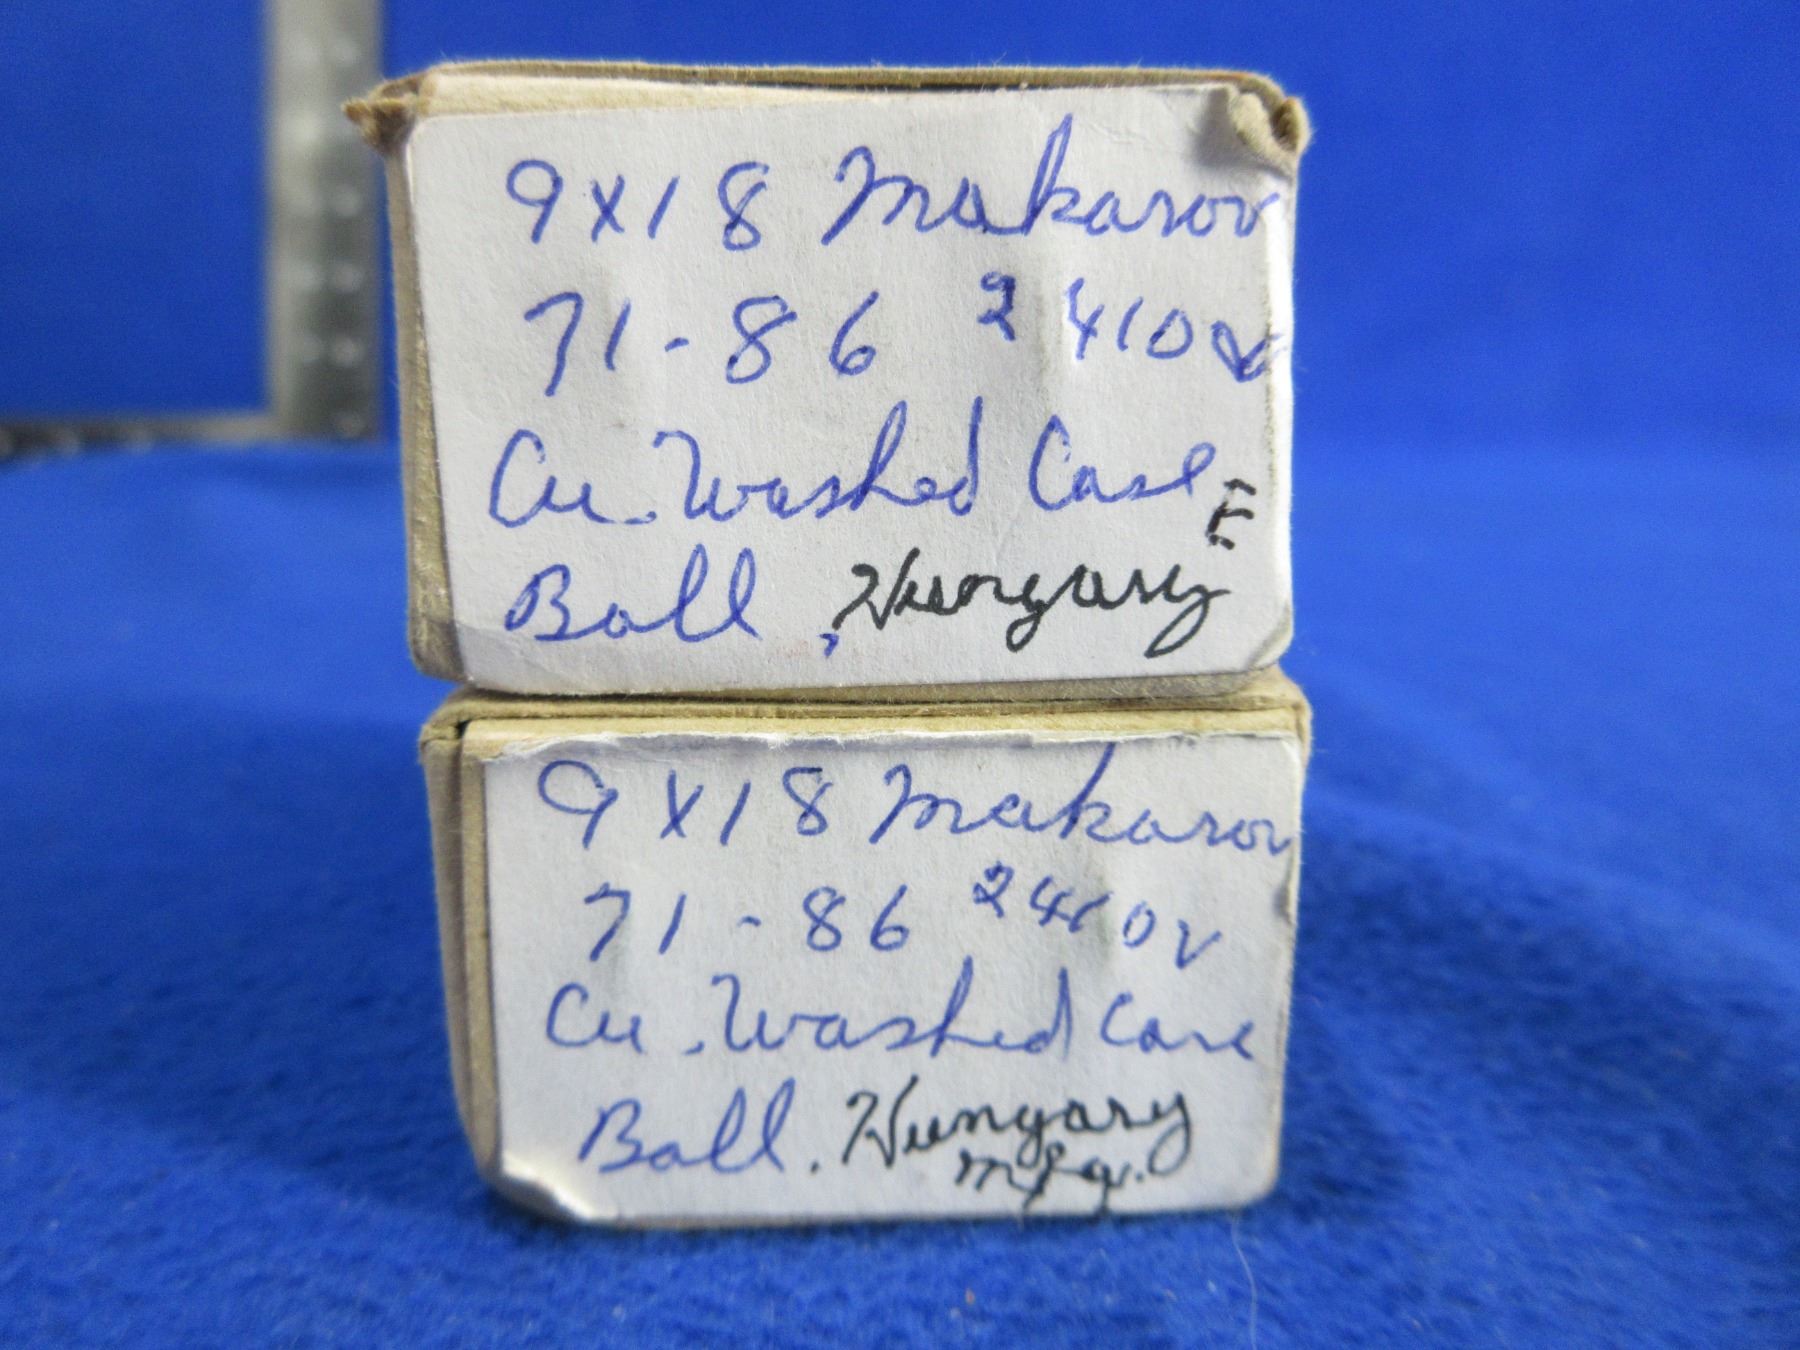 9x18 Makarov
71-86 2410v
Cu. Washed Case
E
Ball, Hungary
9x18 Makarov
71-86 2410v
Cu. Washed Case
Ball. Hungary
mfg.